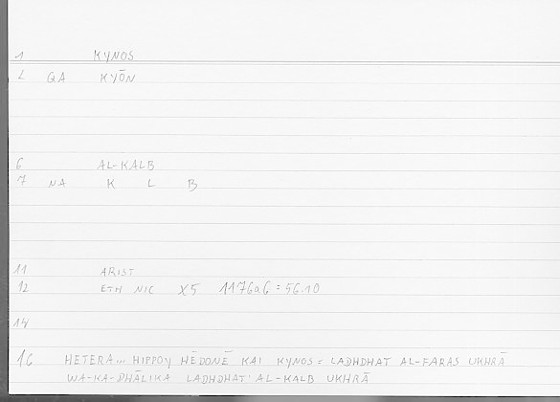 1 KYNOS
2 QA KYŌN
6 AL-KALB
7 NA K L B
11 ARIST
12 ETH NIC X5 1176a6 = 56.10
14
16 HETERA... HIPPOY HĒDONĒ KAI KYNOS = LADHDHAT AL-FARAS UKHRĀ
WA-KA-DHĀLIKA LADHDHAT AL-KALB UKHRĀ